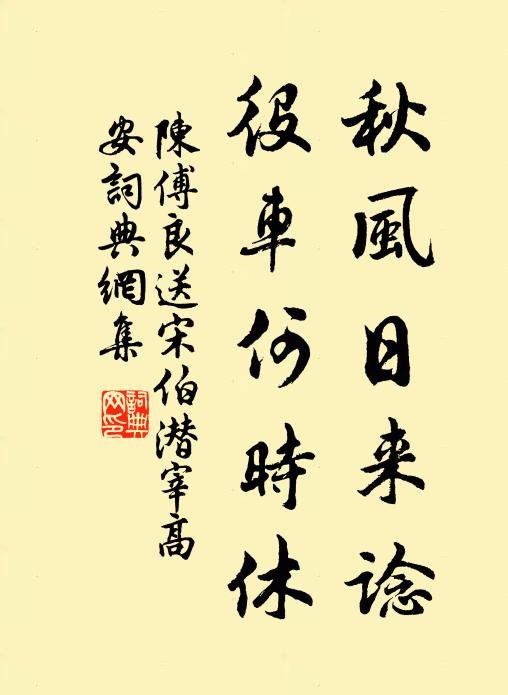 秋風日来諗
役車何時休
陳傅良送宋伯潛宰高
安詞典網集
詞典网印